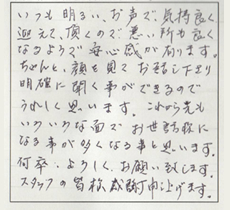 いつも明るい、お声で気持良く
迎えて、頂くので悪い所も良く
なるようで安心感が有ります。
ちゃんと、顔を見てお話し下さり
明確に聞く事ができるので
うれしく思います。これから先も
いろいろな面でお世話様に
なる事が多くなる事と思います。
何卒、よろしくお願い致します。
スタッフの皆様感謝申し上げます。